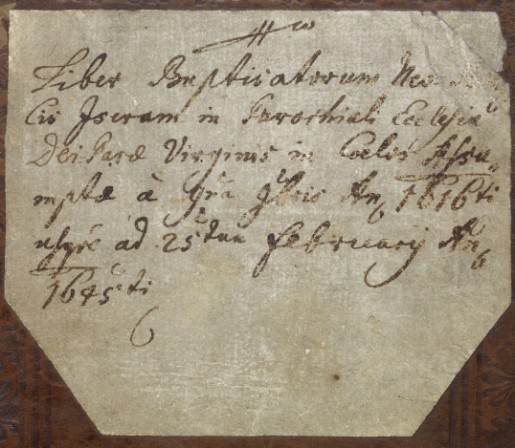 Liber Baptisatorum Neo
Cis Iseram in Parochiali Ecclesia
Dei Paræ Virginis in Coelos Assu=
mptæ à 9bris An 1616ti
usque ad 25tum February An
1645ti